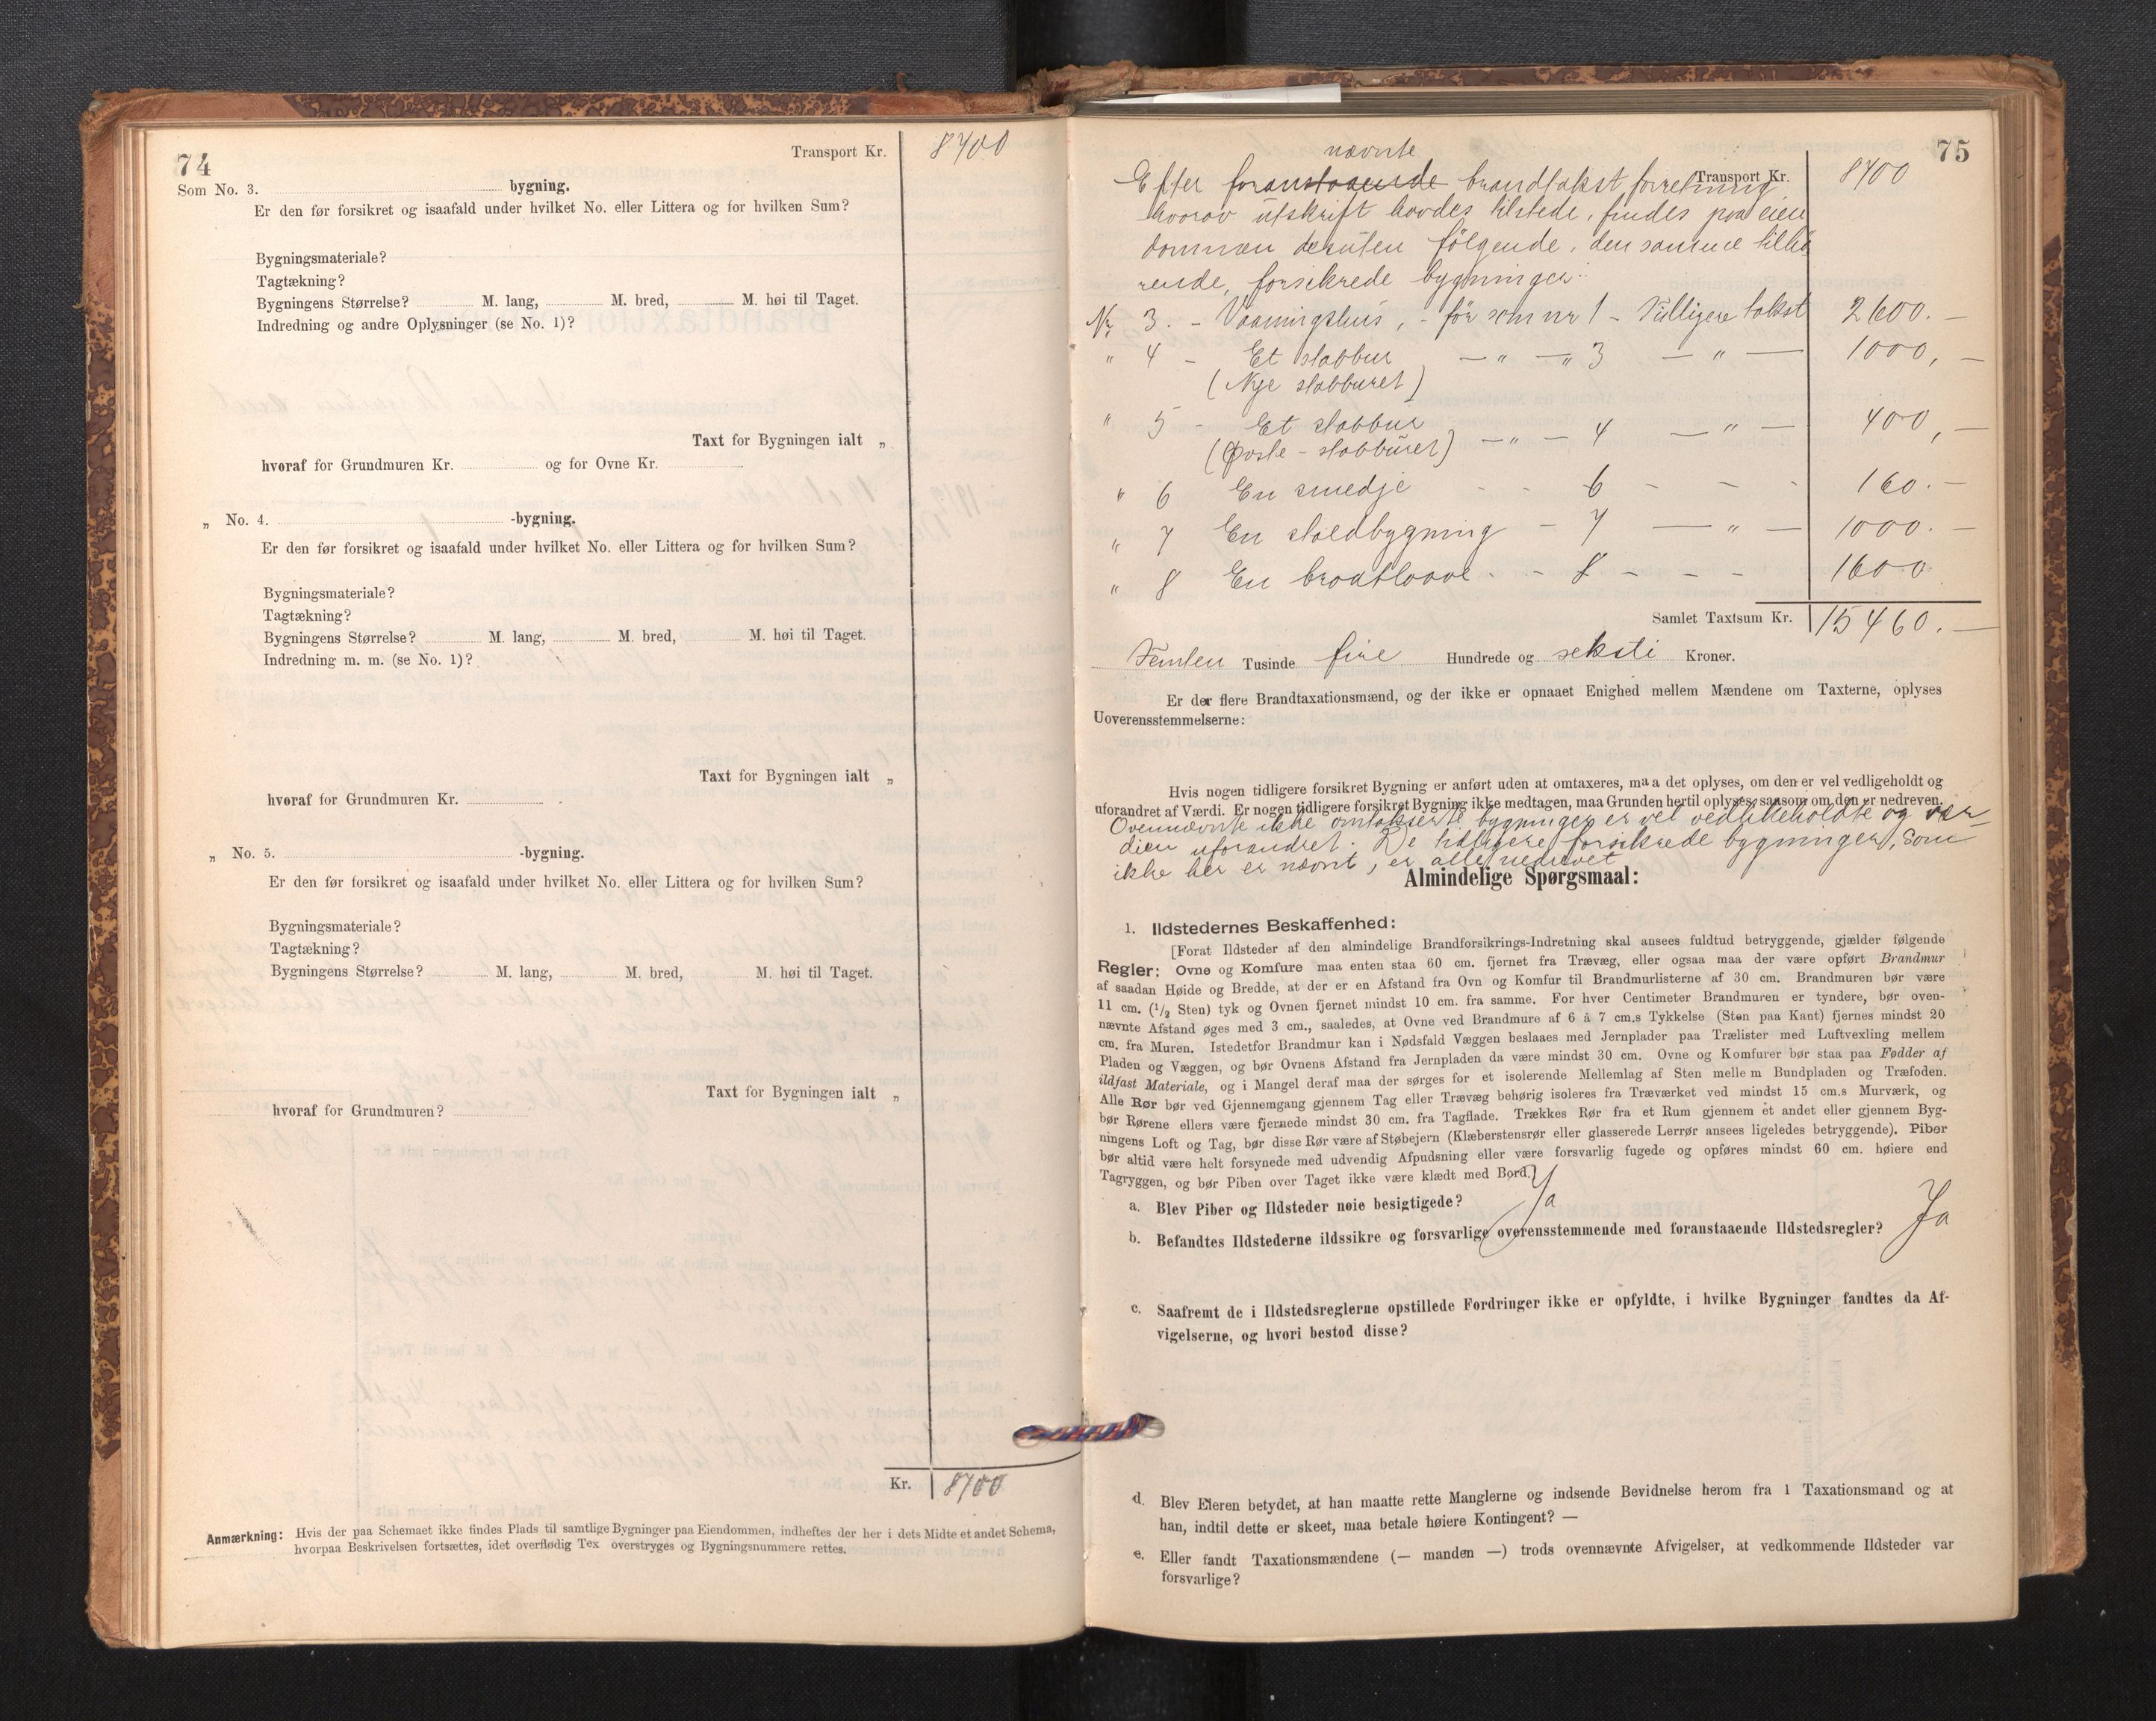 74
Transport Kr. 8700
Som No. 3. bygning.
Er den før forsikret og isaafald under hvilket No. eller Littera og for hvilken Sum?
Bygningsmateriale?
Tagtækning?
Bygningens Størrelse? M. lang, M. bred, M. høi til Taget.
Indredning og andre Oplysninger (se No. 1)?
Taxt for Bygningen ialt „
hvoraf for Grundmuren Kr. og for Ovne Kr.
„ No. 4. -bygning.
Er den før forsikret og isaafald under hvilket No. eller Littera og for hvilken Sum?
Bygningsmateriale?
Tagtækning?
Bygningens Størrelse? M. lang, M. bred, M. høi til Taget.
Indredning m. m. (se No. 1)?
Taxt for Bygningen ialt „
hvoraf for Grundmuren Kr.
„ No. 5. -bygning.
Er den før forsikret og isaafald under hvilket No. eller Littera og for hvilken Sum?
Bygningsmateriale?
Tagtækning?
Bygningens Størrelse? M. lang, M. bred, M. høi til Taget.
Taxt for Bygningen ialt „
hvoraf for Grundmuren?
Kr. 8700
Anmærkning: Hvis der paa Schemaet ikke findes Plads til samtlige Bygninger paa Eiendommen, indheftes der her i dets Midte et andet Schema,
hvorpaa Beskrivelsen fortsættes, idet overflødig Tex overstryges og Bygningsnummere rettes.
75
Transport Kr. 8700
nævnte
Efter foranstaaende brandtakstforretning
hvorav utskrift havdes tilstede, findes paa eien
dommen desuten følgende, den samme tilhø
rende, forsikrede bygninger:
Nr. 3. - Vaaningshus, - før som nr 1 - Tidligere takst 2600. —
" 4 - Et stabbur — " — " 3 — " — 1000, —
(Nye stabburet)
" 5 - Et stabbur — " — 4 — " — 400, —
(Øvste - stabburet)
" 6 En smedje - - 6 - - - 160. —
" 7 En staldbygning - 7 — " — 1000. —
" 8 En braatlaave - - 8 - - - 1600
Samlet Taxtsum Kr. 15460. —
Femten Tusinde fire Hundrede og seksti Kroner.
Er der flere Brandtaxationsmænd, og der ikke er opnaaet Enighed mellem Mændene om Taxterne, oplyses
Uoverensstemmelserne:
Hvis nogen tidligere forsikret Bygning er anført uden at omtaxeres, maa det oplyses, om den er vel vedligeholdt og
uforandret af Værdi. Er nogen tidligere forsikret Bygning ikke medtagen, maa Grunden hertil oplyses, saasom om den er nedreven.
Ovennævnte ikke omtakserte bygninger er vel vedlikeholdte og vær
dien uforandret. De tidligere forsikrede bygninger, som
ikke her er nævnt, er alle nedrevet
Almindelige Spørgsmaal:
1. Ildstedernes Beskaffenhed:
[Forat Ildsteder af den almindelige Brandforsikrings-Indretning skal ansees fuldtud betryggende, gjælder følgende
Regler: Ovne og Komfure maa enten staa 60 cm. fjernet fra Trævæg, eller ogsaa maa der være opført Brandmur
af saadan Høide og Bredde, at der er en Afstand fra Ovn og Komfur til Brandmurlisterne af 30 cm. Brandmuren bør være
11 cm. (1/2 Sten) tyk og Ovnen fjernet mindst 10 cm. fra samme. For hver Centimeter Brandmuren er tyndere, bør oven-
nævnte Afstand øges med 3 cm., saaledes, at Ovne ved Brandmure af 6 à 7 cm.s Tykkelse (Sten paa Kant) fjernes mindst 20
cm. fra Muren. Istedetfor Brandmur kan i Nødsfald Væggen beslaaes med Jernplader paa Trælister med Luftvexling mellem
Pladen og Væggen, og bør Ovnens Afstand fra Jernpladen da være mindst 30 cm. Ovne og Komfurer bør staa paa Fødder af
ildfast Materiale, og i Mangel deraf maa der sørges for et isolerende Mellemlag af Sten mellem Bundpladen og Træfoden.
Alle Rør bør ved Gjennemgang gjennem Tag eller Trævæg behørig isoleres fra Træværket ved mindst 15 cm.s Murværk, og
bør Rørene ellers være fjernede mindst 30 cm. fra Tagflade. Trækkes Rør fra et Rum gjennem et andet eller gjennem Byg-
ningens Loft og Tag, bør disse Rør være af Støbejern (Klæberstensrør eller glasserede Lerrør ansees ligeledes betryggende). Piber
bør altid være helt forsynede med udvendig Afpudsning eller være forsvarlig fugede og opføres mindst 60 cm. høiere end
Tagryggen, og bør Piben over Taget ikke være klædt med Bord.]
a. Blev Piber og Ildsteder nøie besigtigede? Ja
b. Befandtes Ildstederne ildssikre og forsvarlige overensstemmende med foranstaaende Ildstedsregler? Ja
c. Saafremt de i Ildstedsreglerne opstillede Fordringer ikke er opfyldte, i hvilke Bygninger fandtes da Af-
vigelserne, og hvori bestod disse?
d. Blev Eieren betydet, at han maatte rette Manglerne og indsende Bevidnelse herom fra 1 Taxationsmand og at
han, indtil dette er skeet, maa betale høiere Kontingent? —
e. Eller fandt Taxationsmændene (— manden —) trods ovennævnte Afvigelser, at vedkommende Ildsteder var
forsvarlige?